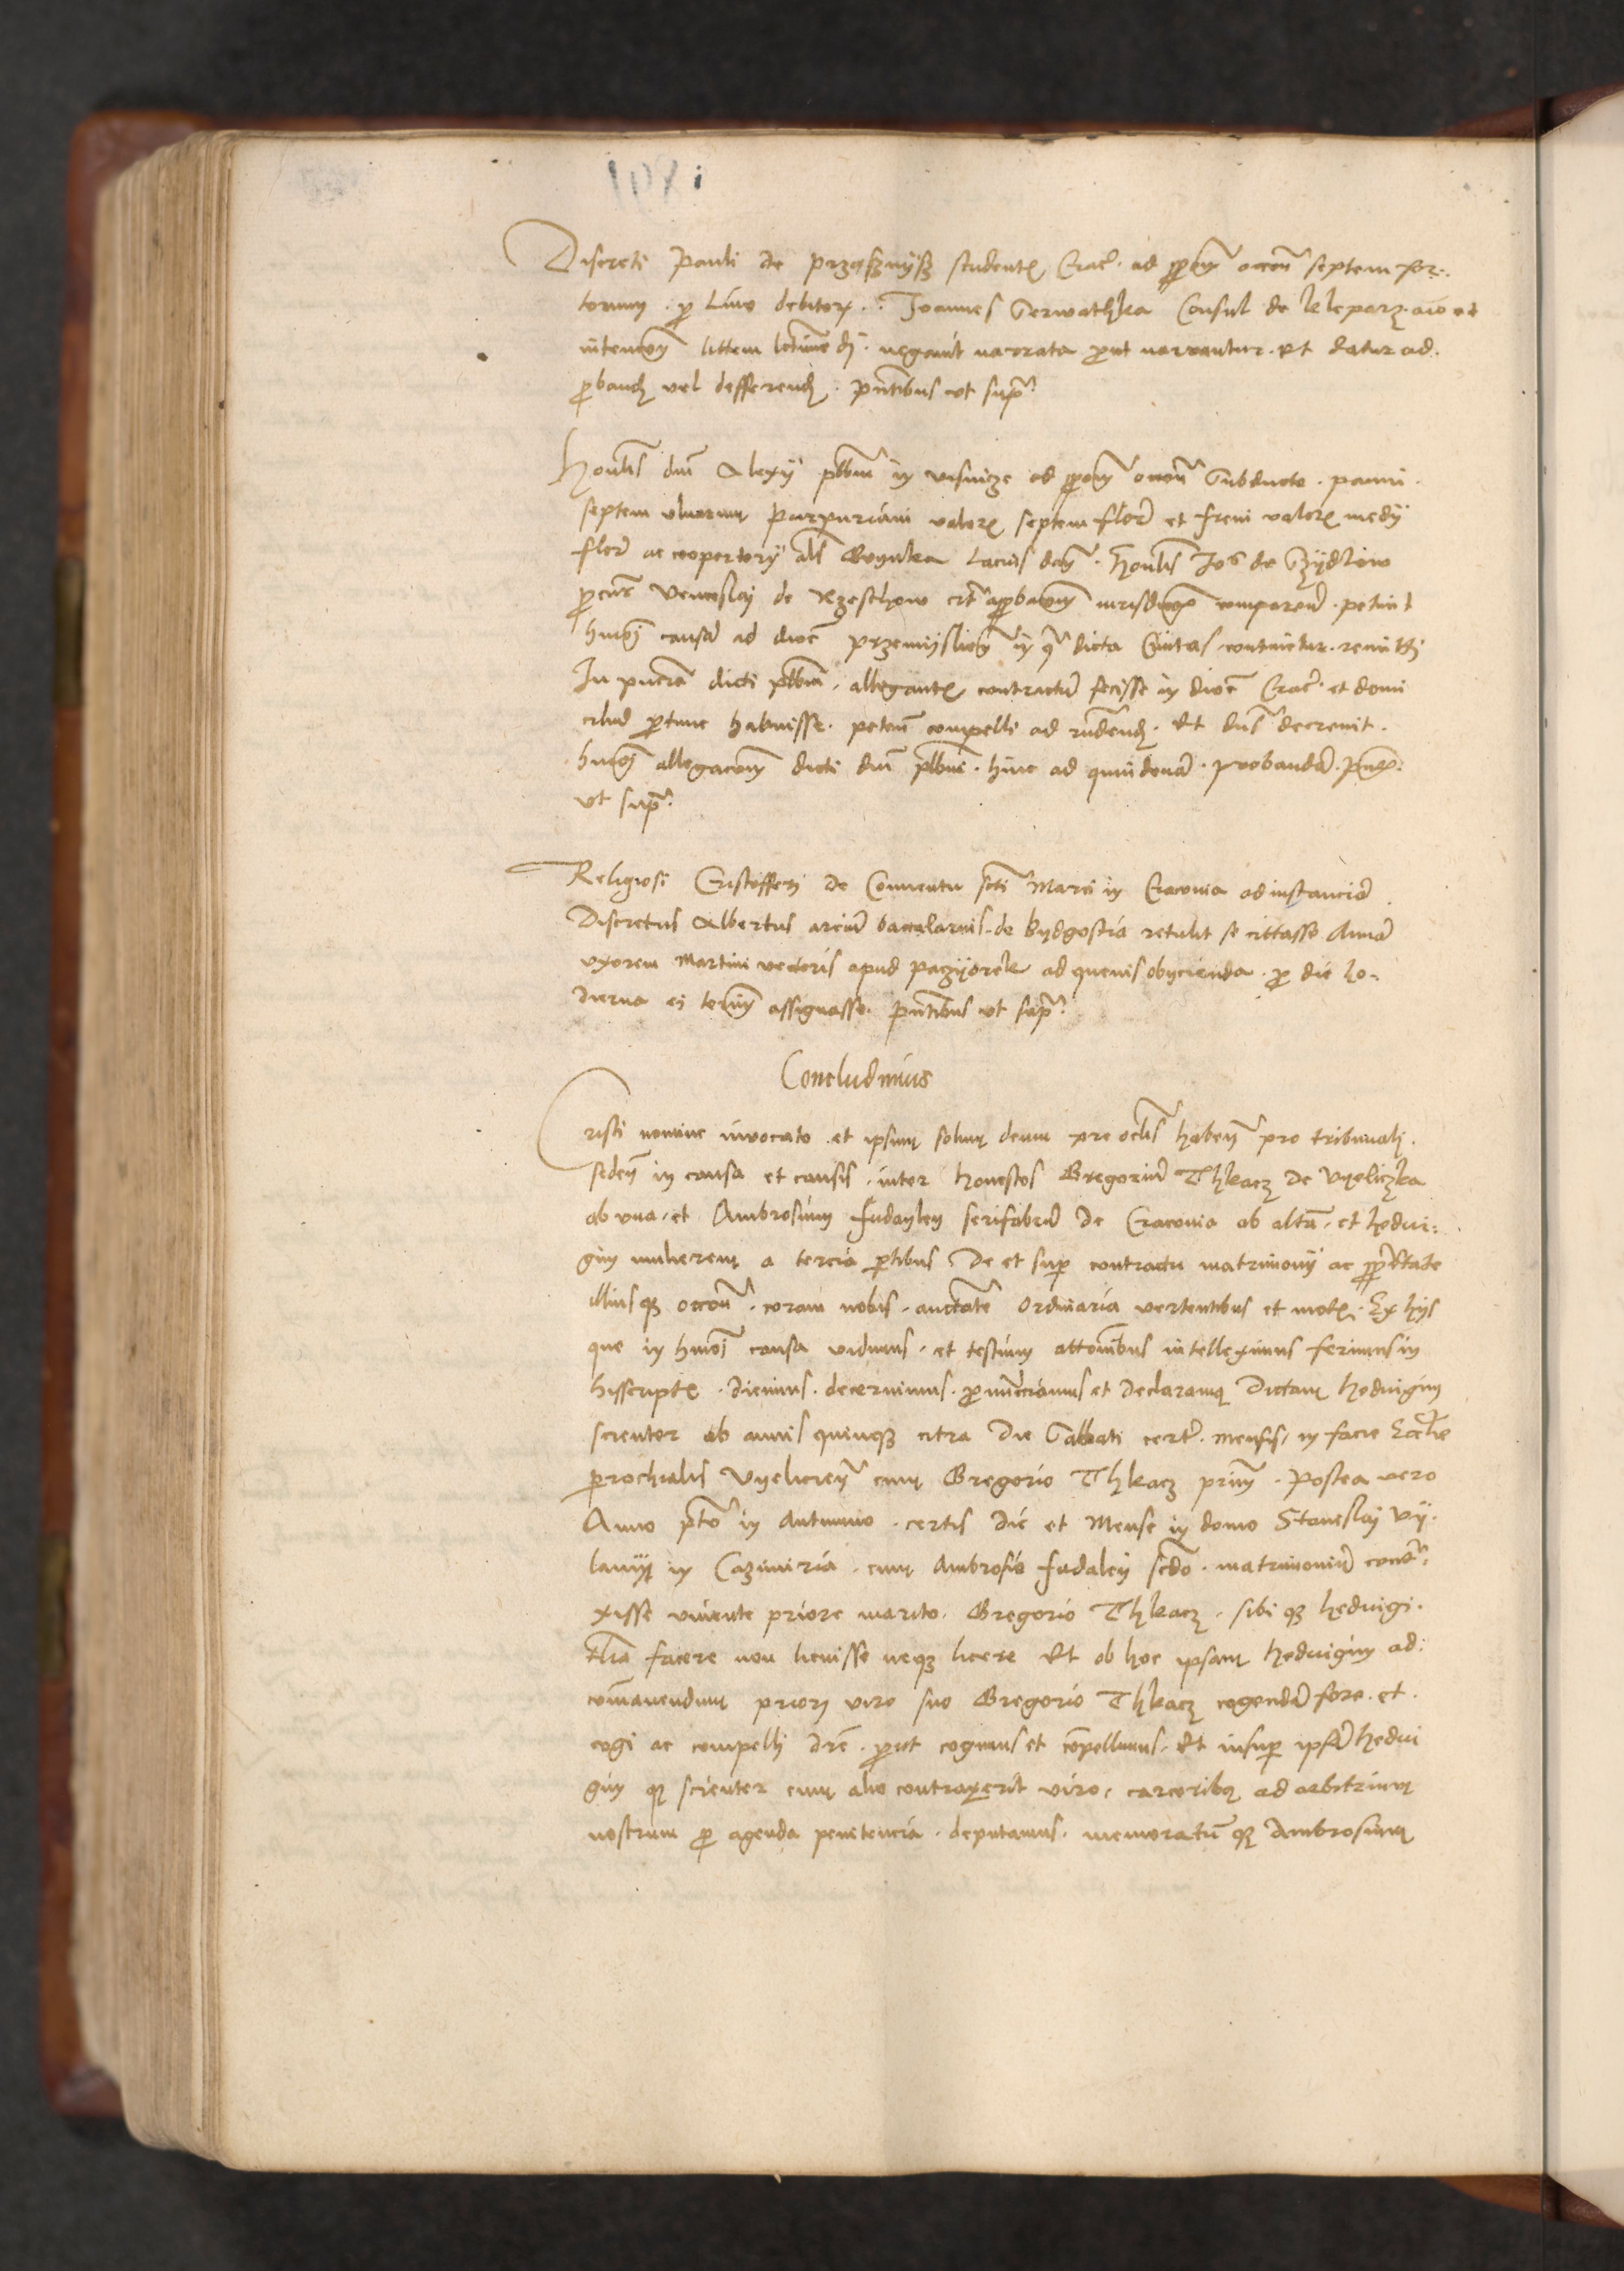 Discreti Pauli de Przasznysz studentis Crac. ad propositionem occasione septem fer-
tonum pro lino debitorum. Joannes Serwathka Consul de Kleparz animo et
intencione littem legittime contestandi negavit narrata prout narrantur. Et datur ad
probandum vel defferendum. presentibus ut supra.
Honorabilis domini Alexii plebani in Visnicze ad propositionem occasione subducte panni
septem ulnarum purpuriani valoris septem flor. et freni valoris medii
flor. ac coopertorii als Lacius Honorabilis Jo. de Szydlow
procurator Venceslai de Rzeschow citra approbacionem iurisdicionis comparens petivit
huiusmodi causam ad dioc. Przemysliensem in qua dicta Civitas continetur remitti
In presencia dicti plebani allegantis contractum fecisse in dioc. Crac. et domi
cilium protunc habuisse petens compelli ad respondendum. Et dominus decrevit
huiusmodi allegacionem dicti domini plebani hinc ad quindenam probandam. presentibus
ut supra.
Religiosi Cristofferi de Conventu sancti Marci in Cracovia ad instanciam
Discretus Albertus arcium baccalarius de Bydgostia retulit se cittasse Annam
uxorem Martini vectoris apud Paczyorek ad quevis obiicienda pro die ho-
dierna ei terminum assignasse. presentibus ut supra.
Concludimus
Cristi nomine invocato et ipsum solum deum pre oculis habentes pro tribunali
sedentes in causa et causis inter honestos Gregorium Thkacz de Vyeliczka
ab una et Ambrosium Fudaley serifabrum de Cracovia ab altera et Hedvi-
gim mulierem a tercia partibus De et super contractu matrimonii ac proprietate
illiusque occasione coram nobis auctoritate Ordinaria vertentibus et motis Ex hiis
que in huiusmodi causa vidimus et testium attestationibus intelleximus ferimus in
hiis scriptis dicimus decernimus pronunciamus et declaramus Dictam Hedvigim
scienter ab annis quinque citra Die Sabbati certi mensis in facie Ecclesie
parochialis Vyeliciensis cum Gregorio Thkacz primum Postea vero
Anno preterito in Autumno certis die et Mense in domo Staneslai Vy-
lamy in Cazimiria cum Ambrosio Fudaley secundo matrimonium contra-
xisse vivente priore marito Gregorio Thkacz sibi que Hedvigi
talia facere non licuisse neque licere Et ob hoc ipsam Hedvigim ad
commanendum priori viro suo Gregorio Thkacz cogendam fore et
cogi ac compelli debere prout cogimus et compellimus Et insuper ipsam Hedvi
gim quia scienter cum alio contraxerit viro carceribus ad arbitrium
nostrum pro agenda penitencia deputamus memoratumque Ambrosium